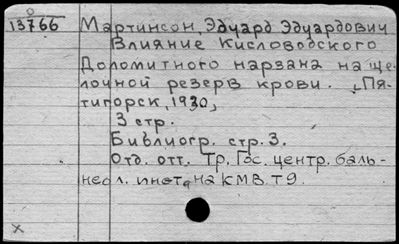 13766 Мартинсон, Эдуард Эдуардович
Влияние Кисловодского
Доломитного нарзана на ще-
лочной резерв крови. Пя-
тигорск, 1930,
3 стр.
Библиогр. стр. 3.
Отд. отт. Тр. Гос. центр. баль-
неол. инст. на КМВ. т 9.
x